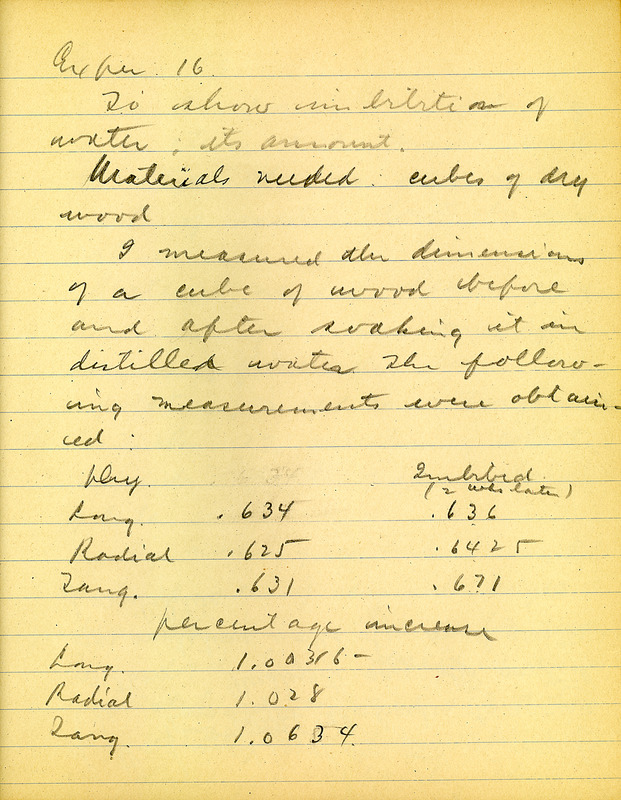 Exper. 16.
To show imbibition of
water; its amount.
Materials needed. cubes of dry
wood
I measured the dimensions
of a cube of wood before
and after soaking it in
distilled water. The follow-
ing measurements were obtain-
ed:
Dry. Imbibed
(2 wks later)
Long. .634 .636
Radial .625 .6425
Tang. .631 .671
percentage increase
Long. 1.00316-
Radial 1.028
Tang. 1.0634